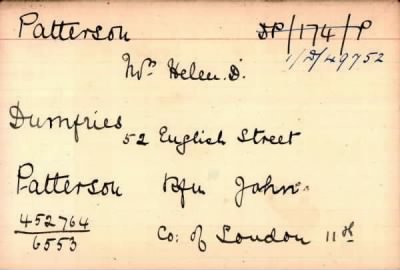 Patterson DP/174/P
1/D/49752
Mrs Helen. D.
Dumfries 52 English Street
Patterson Rfn John.
452764
6553
Co: of London 11th